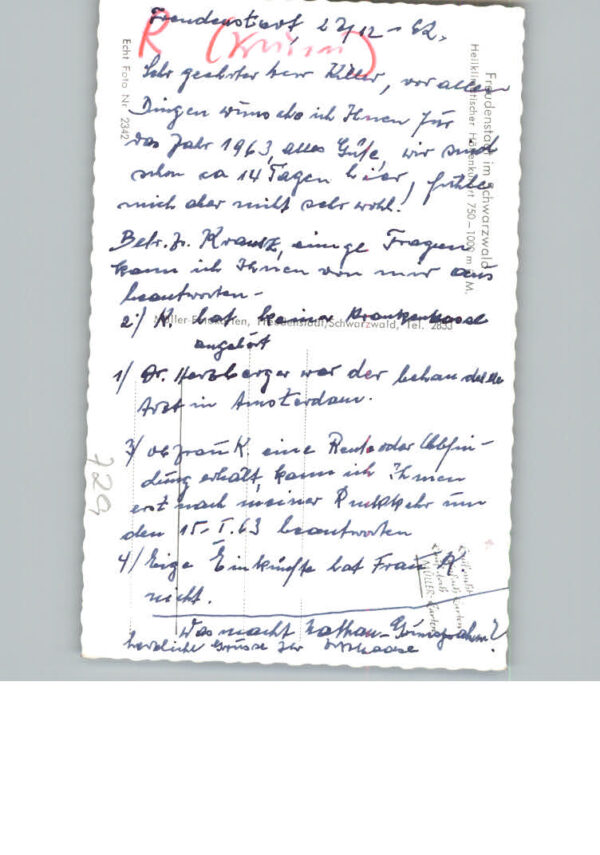 Freudenstadt, 27/12-62.
R
Sehr geehrter Herr , vor allen
Dingen wünsche ich Ihnen für
das Jahr 1963, alles Gute, wir sind
schon ca 14 Tagen hier, fühle
mich aber nicht sehr wohl!
Betr. Fr. Krantz, einige Fragen
kann ich Ihnen von mir aus
beantworten -
2/ K. hat keine Krankenkasse
angehört
1/ Dr. Herzberger war der behandelnde
Arzt in Amsterdam.
3/ ob Frau K. eine Rente oder Abfin-
dung erhält, kann ich Ihnen
erst nach meiner Rückkehr um
den 15-I.63 beantworten
4/ Eige Einkünfte hat Frau K
nicht.
Was macht Nathan - ?
herzliche Grüsse Ihr
729
Echt Foto Nr. 2342
Freudenstadt im Schwarzwald
Heilklimatischer Höhenkurort 750-1000 m ü. M.
Müller-Fotokarten, Freudenstadt/Schwarzwald, Tel. 2853
MÜLLER-Karten